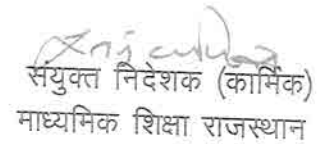 संयुक्त निदेशक (कार्मिक)
माध्यमिक शिक्षा राजस्थान